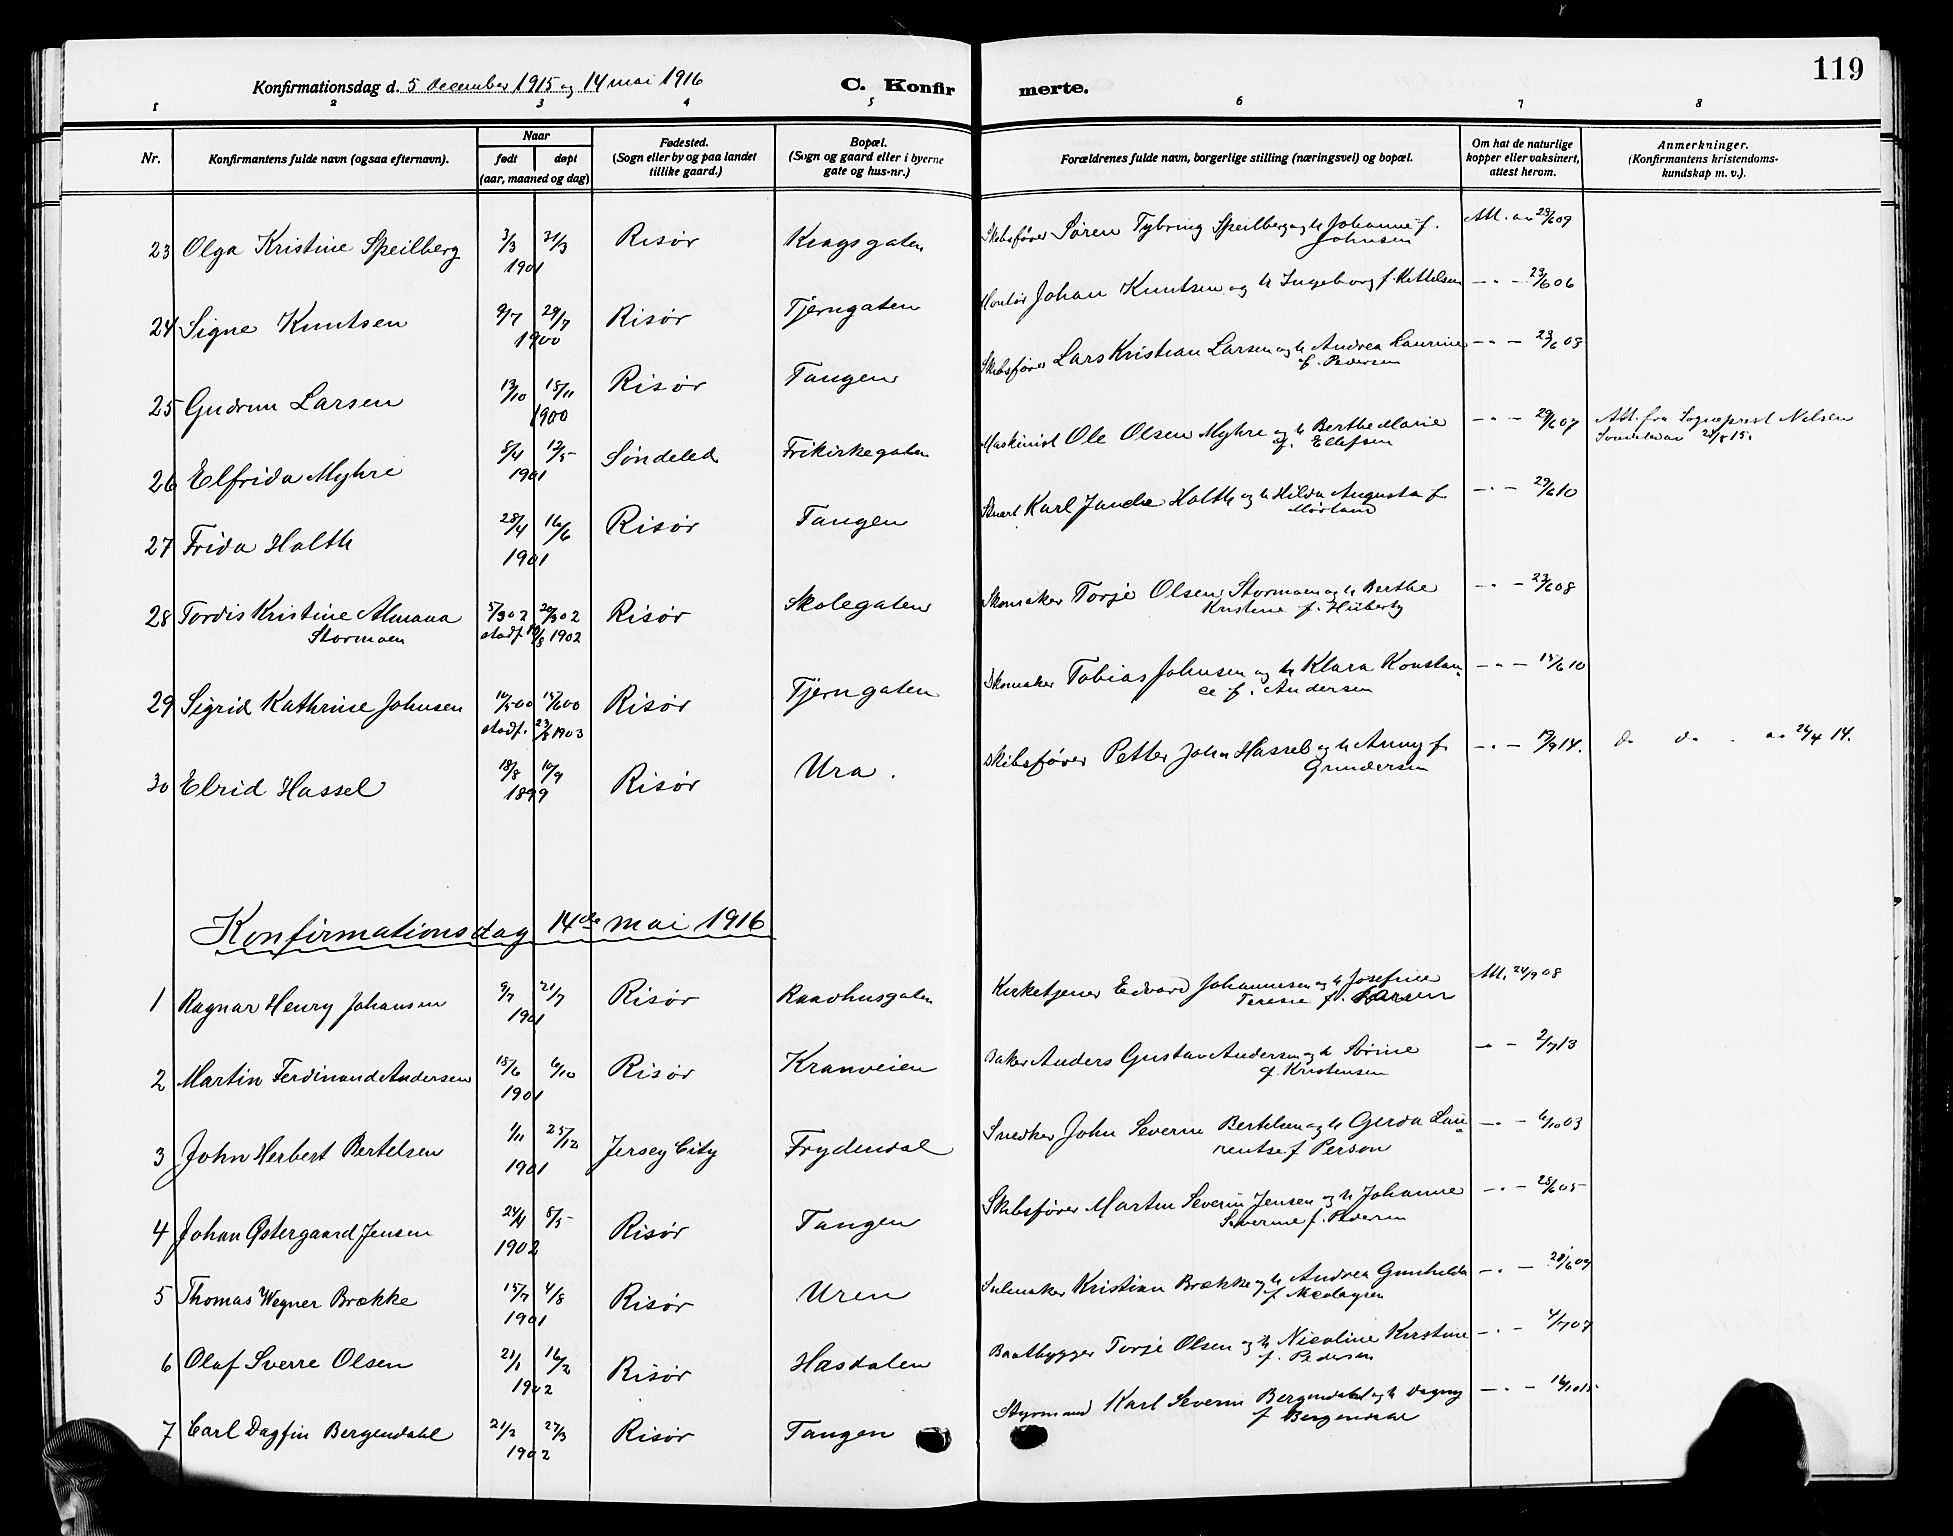 119
Konfirmationsdag d. 5 december 1915 og 14 mai 1916
C. Konfirmerte.
1 2 3 4 5 6 7 8
Nr.
Konfirmantens fulde navn (ogsaa efternavn).
Naar
født
døpt
(aar, maaned og dag)
Fødested.
(Sogn eller by og paa landet
tillike gaard.)
Bopæl.
(Sogn og gaard eller i byerne
gate og hus-nr.)
Forældrenes fulde navn, borgerlige stilling (næringsvei) og bopæl.
Om hat de naturlige
kopper eller vaksinert,
attest herom.
Anmerkninger.
(Konfirmantens kristendoms-
kundskap m. v.).
23 Olga Kristine Speilberg 3/3 31/3 Risør Kragsgaten Skibsfører Søren Tybring Speilberg og h Johanne f. Att. av 28/6 09
1901 Johnsen
24 Signe Knutsen 9/7 29/7 Risør Tjerngaten Johan Knutsen og h Ingeborg f. Kittelsen - " - 23/6 06
1900
25 Gudrun Larsen 13/10 18/11 Risør Tangen Skibsfører Lars Kristian Larsen og h Andrea Laurine - " - 23/6 08
1900 f. Pedersen
26 Elfrida Myhre 8/4 12/5 Søndeled Frikirkegaten Maskinist Ole Olsen Myhre og h Berthe Marie - " - 29/6 07 Att. fra Sogneprest Nilsen
1901 f. Ellefsen
27 Frida Holth 28/4 16/6 Risør Tangen Karl Holth og h Hilda Augusta f. - " - 29/6 10
1901
28 Tordis Kristine Almana 5/3 02 20/3 02 Risør Skolegaten Skomaker Torje Olsen Stormoen og h Berthe - " - 23/6 08
Stormoen stadf. 1902 Kristine f.
29 Sigrid Kathrine Johnsen 16/5 00 15/6 00 Risør Tjerngaten Skomaker Tobias Johnsen og h Klara Konstan- - " - 15/6 10
stadf. 23/8 1903 ce f. Andersen
30 Elrid Hassel 18/8 10/9 Risør Ura. Skibsfører Petter John Hassel og h Anny f. - " - 19/9 14. do do av 26/4 14.
1899 Gundersen
Konfirmationsdag 14de mai 1916
1 Ragnar Henry Johansen 9/7 21/7 Risør Raadhusgaten Kirketjener Edvard Johannesen og h Josefine Att. 24/9 08
1901 Terese f. Larsen
2 Martin Ferdinand Andersen 18/6 6/10 Risør Kranveien Baker Anders Gustav Andersen og h Sørine - " - 2/7 13
1901 f. Kristensen
3 John Herbert Bertelsen 1/11 25/12 Jersey City Frydendal Snedker John Severin Bertelsen og h Gerda Lau- - " - 6/10 03
1901 rentse f Person
4 Johan Østergaard Jensen 24/4 8/5 Risør Tangen Skibsfører Martin Severin Jensen og h Johanne - " - 28/6 05
1902 Severine f. Pedersen
5 Thomas Wegner Brække 15/7 4/8 Risør Uren Seilmaker Kristian Brække og h Andrea Gunhilda - " - 28/6 09
1901 f. Nicolaysen
6 Olaf Sverre Olsen 21/1 16/2 Risør Hasdalen Baatbygger Torje Olsen og h Nicoline Kirstine - " - 4/7 07
1902 f. Pedersen
7 Carl Dagfin Bergendahl 21/2 27/3 Risør Tangen Styrmand Karl Severin Bergendahl og h Dagny - " - 16/10 15
1902 f Bergendal